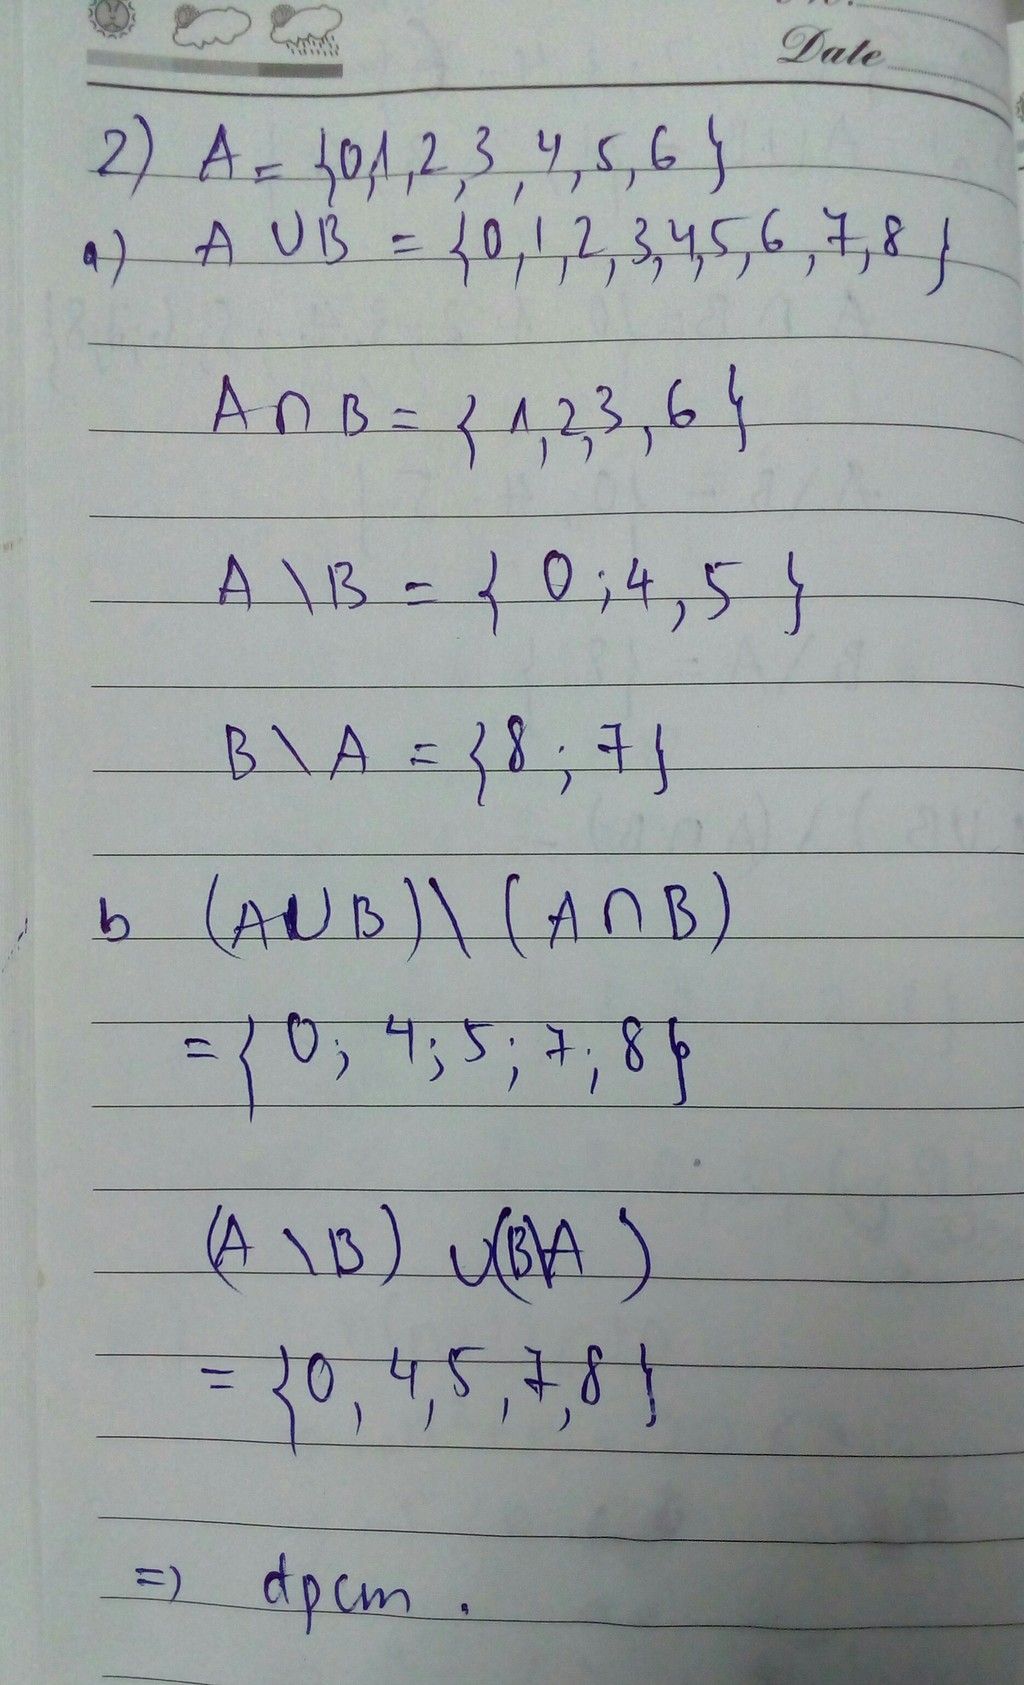 Date
2) A = {0,1,2,3,4,5,6}
a) A ∪ B = {0,1,2,3,4,5,6,7,8}
A ∩ B = {1,2,3,6}
A \ B = {0;4,5}
B \ A = {8;7}
b (A ∪ B) \ (A ∩ B)
= {0; 4; 5; 7; 8}
(A \ B) ∪ (B \ A)
= {0, 4, 5, 7, 8}
=> dpcm.